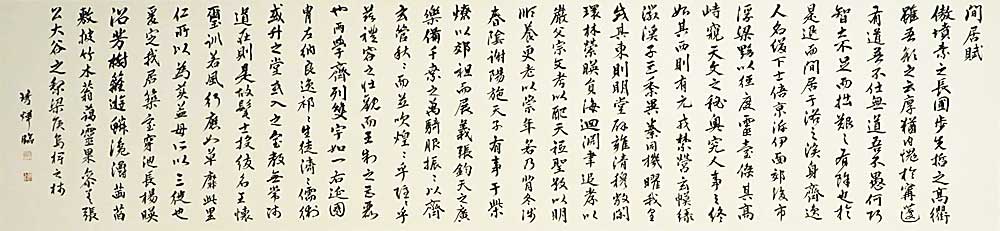 閒居賦
傲墳素之長圃步先哲之高衢
雖吾顏之云厚猶內愧於甯蘧
有道吾不仕無道吾不愚何巧
智之不足而拙艱之有餘也於
是退而閒居于洛之涘身齊逸
人名綴下士倍京泝伊面郊後市
浮梁黝以徑度靈臺傑其高
峙窺天文之秘奧究人事之終
始其西則有元戎禁營玄幙綠
徽溪子巨黍異絭同機曜我皇
威其東則明堂辟雍清穆敞閑
環林縈暎負海迴淵聿追孝以
嚴父宗文考以配天祗聖敬以明
順養更老以崇年若乃背冬涉
春陰謝陽施天子有事于柴
燎以郊祖而展義張鈞天之廣
樂備千乘之萬騎服振々以齊
玄管啾々而並吹煌々乎隱々乎
茲禮容之壯觀而王制之巨麗
也兩學齊列雙宇如一右延國
胄左納良逸祁々生徒濟々儒術
或升之堂或入之室教無常師
道在則是故髦士投紱名王懷
璽訓若風行應如草靡此里
仁所以為美孟母所以三徙也
爰定我居築室穿池長楊暎
沼芳樹籬遊鱗瀺灂菡萏
敷披竹木蓊藹靈果參差張
公大谷之梨梁侯烏椑之柿